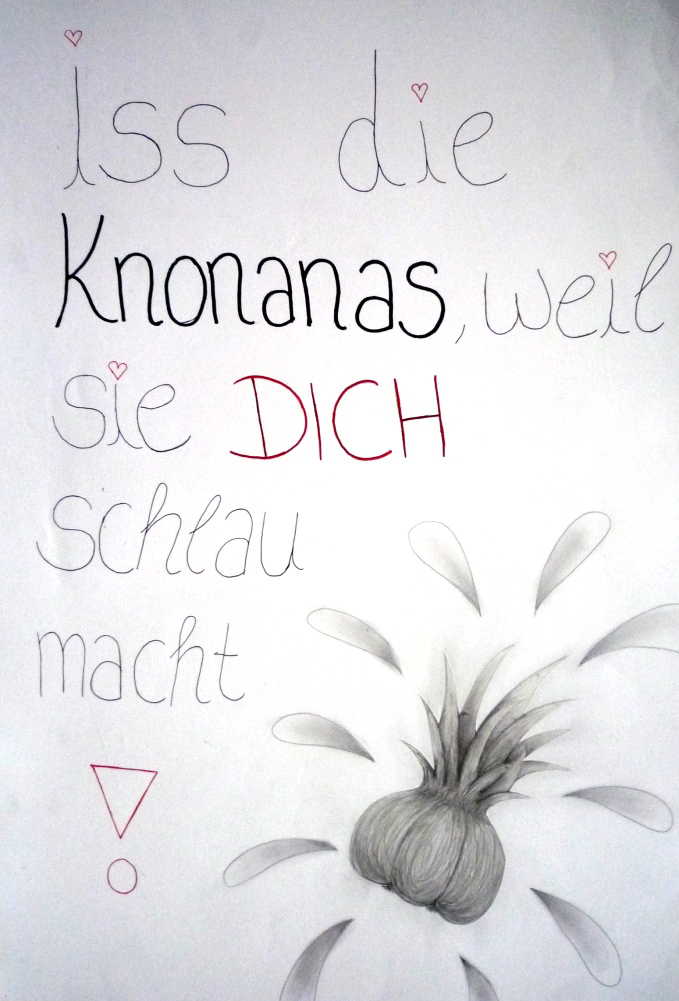 iss die
Knonanas, weil
sie DICH
schlau
macht
!